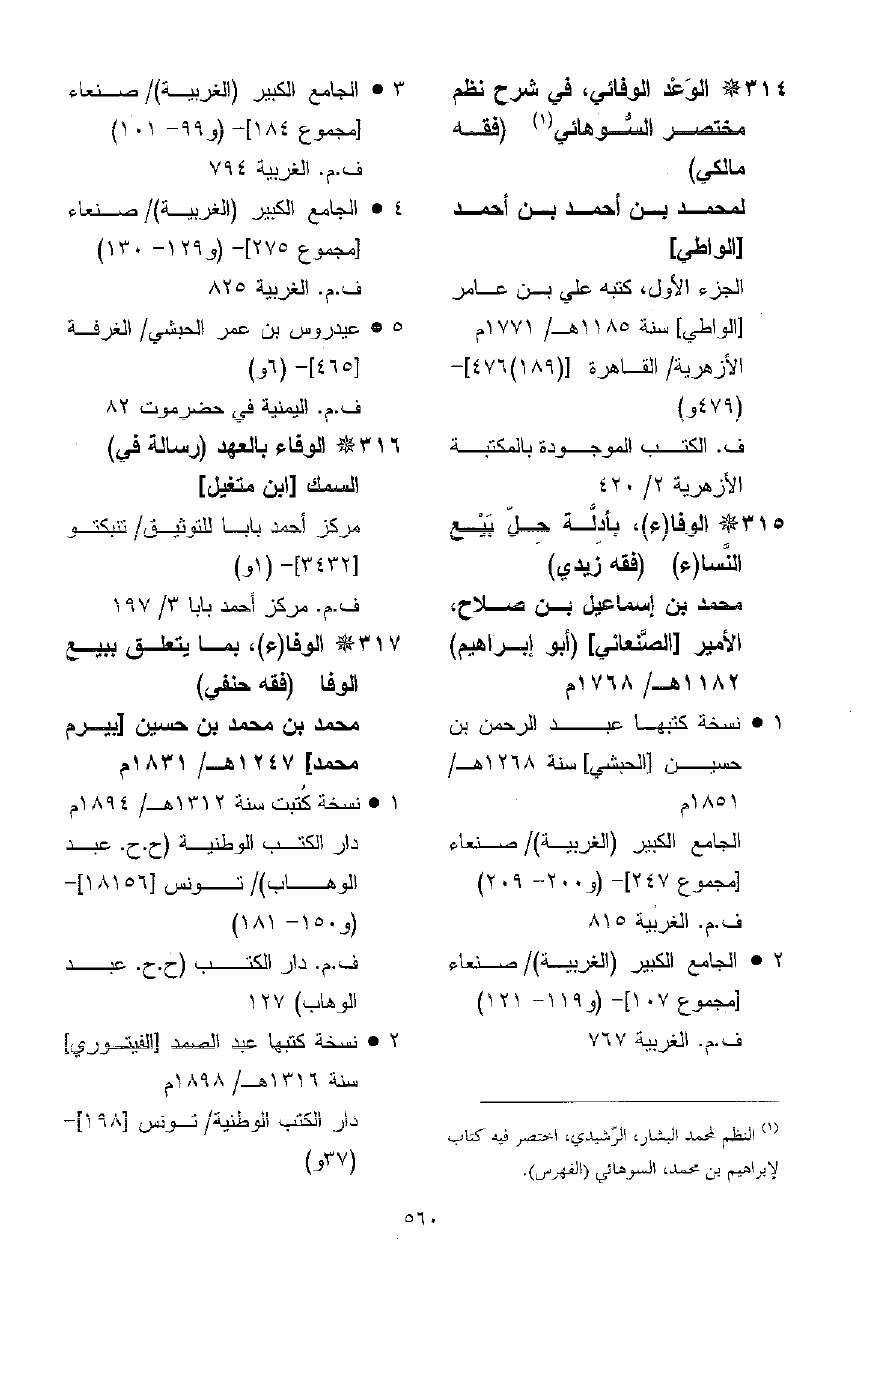 ٣١٤❋ الوَعْد الوفائي، في شرح نظم
مختصر السُّوهائي(١) (فقه
مالكي)
لمحمد بن أحمد بن أحمد
[الواطي]
الجزء الأول، كتبه علي بن عامر
[الواطي] سنة ١١٨٥هـ/ ١٧٧١م
الأزهرية/ القاهرة [(١٨٩)٤٧٦]-
(٤٧٩و)
ف. الكتب الموجودة بالمكتبة
الأزهرية ٢/ ٤٢٠
٣١٥❋ الوفا(ء)، بأدلَّة حلّ بَيْع
النَّسا(ء) (فقه زيدي)
محمد بن إسماعيل بن صلاح،
الأمير [الصَّنعاني] (أبو إبراهيم)
١١٨٢هـ/ ١٧٦٨م
١ • نسخة كتبها عبد الرحمن بن
حسين [الحبشي] سنة ١٢٦٨هـ/
١٨٥١م
الجامع الكبير (الغربية)/ صنعاء
[مجموع ٢٤٧]- (و٢٠٠- ٢٠٩)
ف.م. الغربية ٨١٥
٢ • الجامع الكبير (الغربية)/ صنعاء
[مجموع ١٠٧]- (و١١٩- ١٢١)
ف.م. الغربية ٧٦٧
(١) النظم لمحمد البشار، الرّشيدي، اختصر فيه كتاب
لإبراهيم بن محمد، السوهائي (الفهرس).
٣ • الجامع الكبير (الغربية)/ صنعاء
[مجموع ١٨٤]- (و٩٩- ١٠١)
ف.م. الغربية ٧٩٤
٤ • الجامع الكبير (الغربية)/ صنعاء
[مجموع ٢٧٥]- (و١٢٩- ١٣٠)
ف.م. الغربية ٨٢٥
٥ • عيدروس بن عمر الحبشي/ الغرفة
[٤٦٥]- (٦و)
ف.م. اليمنية في حضرموت ٨٢
٣١٦❋ الوفاء بالعهد (رسالة في)
السمك [ابن متغيل]
مركز أحمد بابا للتوثيق/ تنبكتو
[٣٤٣٢]- (١و)
ف.م. مركز أحمد بابا ٣/ ١٩٧
٣١٧❋ الوفا(ء)، بما يتعلق ببيع
الوفا (فقه حنفي)
محمد بن محمد بن حسين [بيرم
محمد] ١٢٤٧هـ/ ١٨٣١م
١ • نسخة كُتبت سنة ١٣١٢هـ/ ١٨٩٤م
دار الكتب الوطنية (ح.ح. عبد
الوهاب)/ تونس [١٨١٥٦]-
(و١٥٠- ١٨١)
ف.م. دار الكتب (ح.ح. عبد
الوهاب) ١٢٧
٢ • نسخة كتبها عبد الصمد [الفيتوري]
سنة ١٣١٦هـ/ ١٨٩٨م
دار الكتب الوطنية/ تونس [١٩٨]-
(٣٧و)
٥٦٠